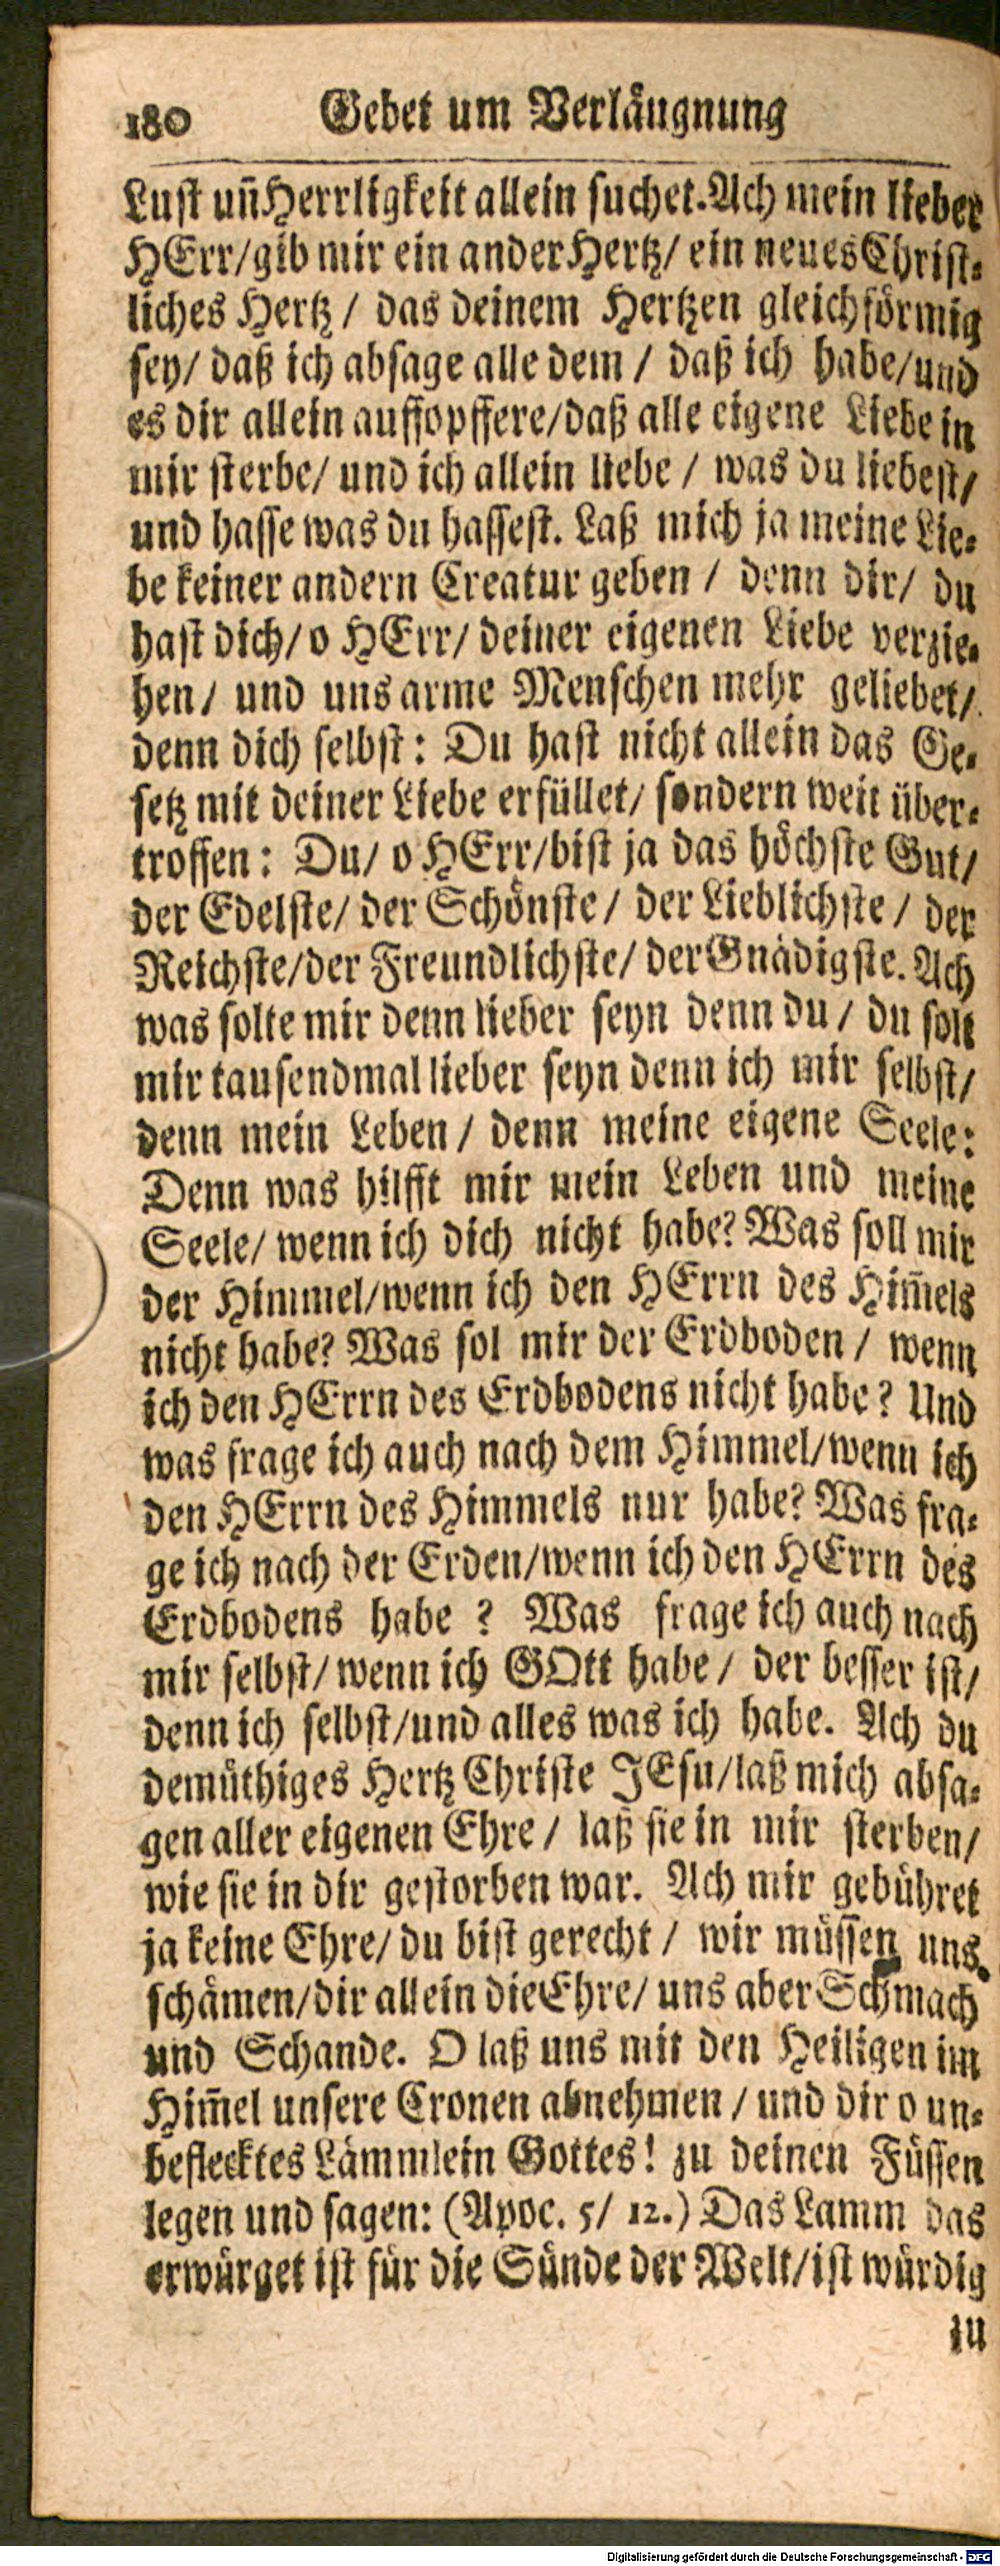 180 Gebet um Verläugnung
Lust uñ Herrligkeit allein suchet. Ach mein lieber
HErr/gib mir ein ander Hertz/ ein neues Christ-
liches Hertz / das deinem Hertzen gleichförmig
sey/ daß ich absage alle dem / daß ich habe/und
es dir allein auffopffere/daß alle eigene Liebe in
mir sterbe/ und ich allein liebe / was du liebest/
und hasse was du hassest. Laß mich ja meine Lie-
be keiner andern Creatur geben / denn dir/ du
hast dich/ o HErr/ deiner eigenen Liebe verzie-
hen/ und uns arme Menschen mehr geliebet/
denn dich selbst: Du hast nicht allein das Ge-
setz mit deiner Liebe erfüllet/ sondern weit über-
troffen: Du/ o HErr/bist ja das höchste Gut/
der Edelste/ der Schönste / der Lieblichste / der
Reichste/der Freundlichste/ der Gnädigste. Ach
was solte mir denn lieber seyn denn du / du solt
mir tausendmal lieber seyn denn ich mir selbst/
denn mein Leben / denn meine eigene Seele:
Denn was hilfft mir mein Leben und meine
Seele/ wenn ich dich nicht habe? Was soll mir
der Himmel/wenn ich den HErrn des Him̃els
nicht habe? Was sol mir der Erdboden / wenn
ich den HErrn des Erdbodens nicht habe? Und
was frage ich auch nach dem Himmel/wenn ich
den HErrn des Himmels nur habe? Was fra-
ge ich nach der Erden/wenn ich den HErrn des
Erdbodens habe ? Was frage ich auch nach
mir selbst/ wenn ich GOtt habe / der besser ist/
denn ich selbst/und alles was ich habe. Ach du
demüthiges Hertz Christe JEsu/laß mich absa-
gen aller eigenen Ehre / laß sie in mir sterben/
wie sie in dir gestorben war. Ach mir gebühret
ja keine Ehre/ du bist gerecht / wir müssen uns
schämen/dir allein die Ehre/ uns aber Schmach
und Schande. O laß uns mit den Heiligen im
Him̃el unsere Cronen abnehmen / und dir o un-
beflecktes Lämmlein Gottes! zu deinen Füssen
legen und sagen: (Apoc. 5/ 12.) Das Lamm das
erwürget ist für die Sünde der Welt/ist würdig
zu
Digitalisierung gefördert durch die Deutsche Forschungsgemeinschaft - DFG